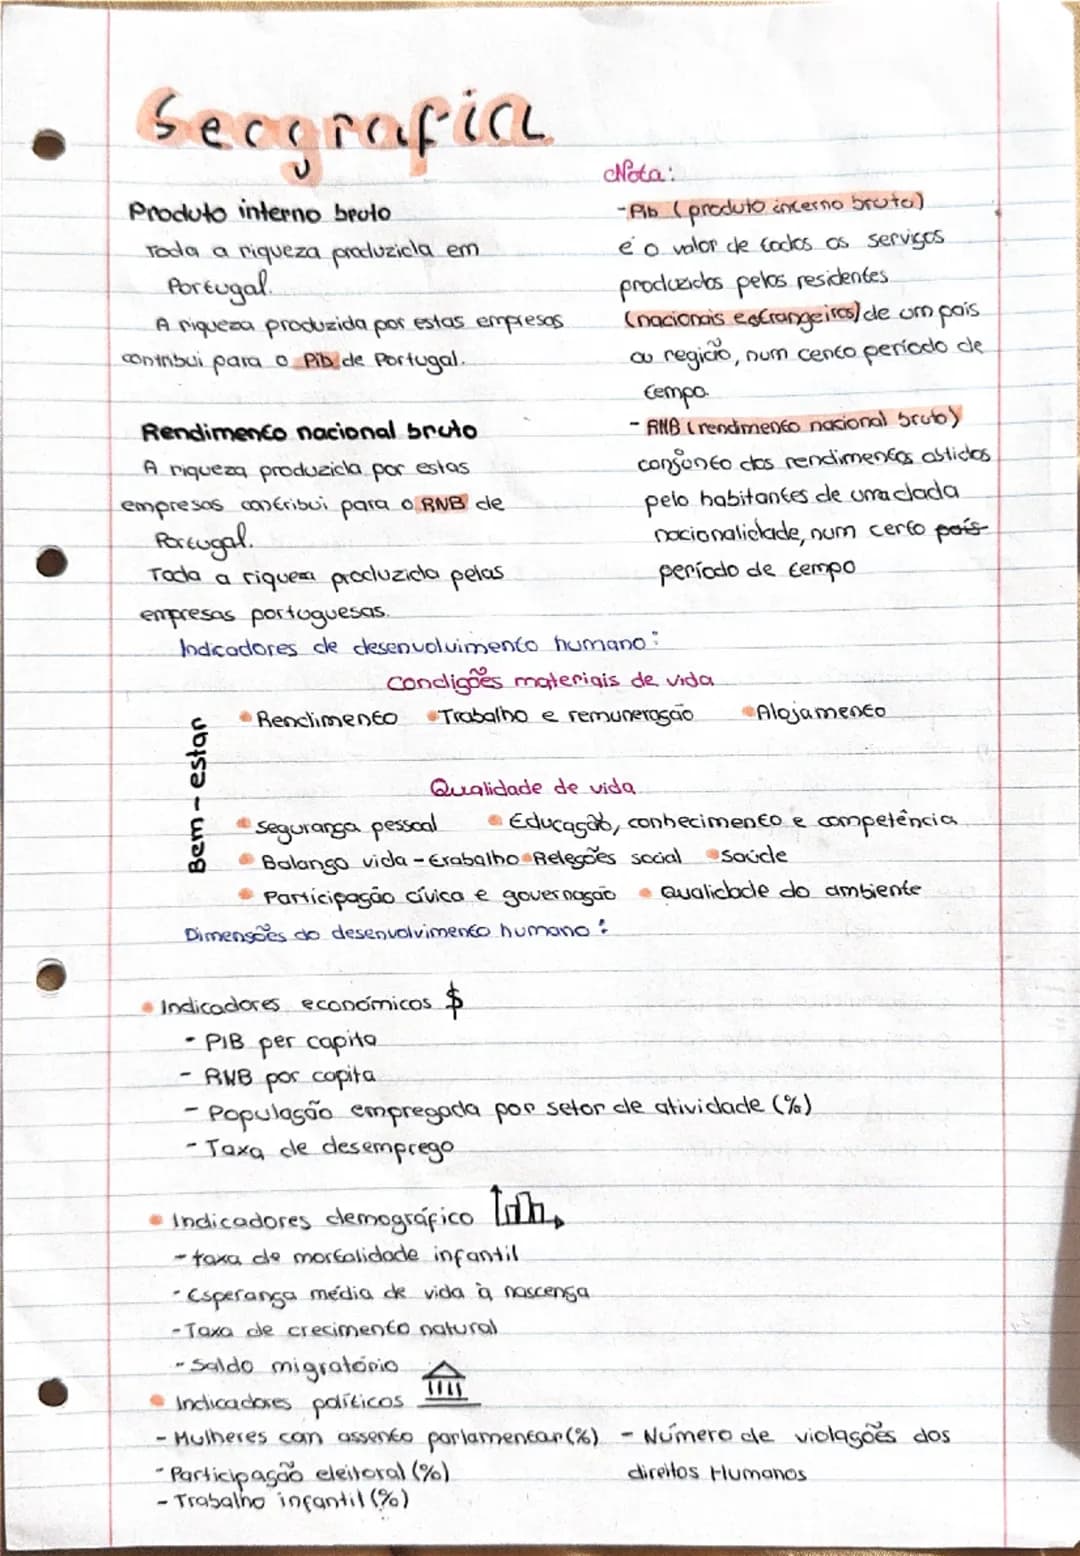 Geografia
Produto interno bruto
Toda a riqueza produzida em
Portugal.
A riqueza produzida por estas empresas
contribui para o Pib de Portugal.
Rendimento nacional bruto
A riqueza produzida por estas
empresas contribui para o RNB de
Portugal.
Toda a riqueza produzida pelas
empresas portuguesas.
Nota:
- Pib (produto interno bruto)
é o valor de todos os serviços
produzidos pelos residentes
(nacionais estrangeiros) de um país
ou região, num cento período de
tempo.
- RNB (rendimento nacional bruto)
conjunto dos rendimentos obtidos
pelo habitantes de uma dada
nacionalidade, num certo país
período de tempo
Indicadores de desenvolvimento humano:
Condições materiais de vida
• Rendimento • Trabalho e remuneração • Alojamento
Bem-estar
Qualidade de vida
• Segurança pessoal • Educação, conhecimento e competência
• Balanço vida-trabalho • Releções social • Saúde
• Participação cívica e governação • Qualidade do ambiente
Dimensões do desenvolvimento humano:
• Indicadores económicos $
- PIB per capita
- RNB por capita
- População empregada por setor de atividade (%)
- Taxa de desemprego
• Indicadores demográfico
- taxa de mortalidade infantil
- Esperança média de vida à nascença
- Taxa de crecimento natural
- Saldo migratório
• Indicadores políticos
- Mulheres com assento parlamentar (%) - Número de violações dos
direitos Humanos
- Participação eleitoral (%)
- Trabalho infantil (%)